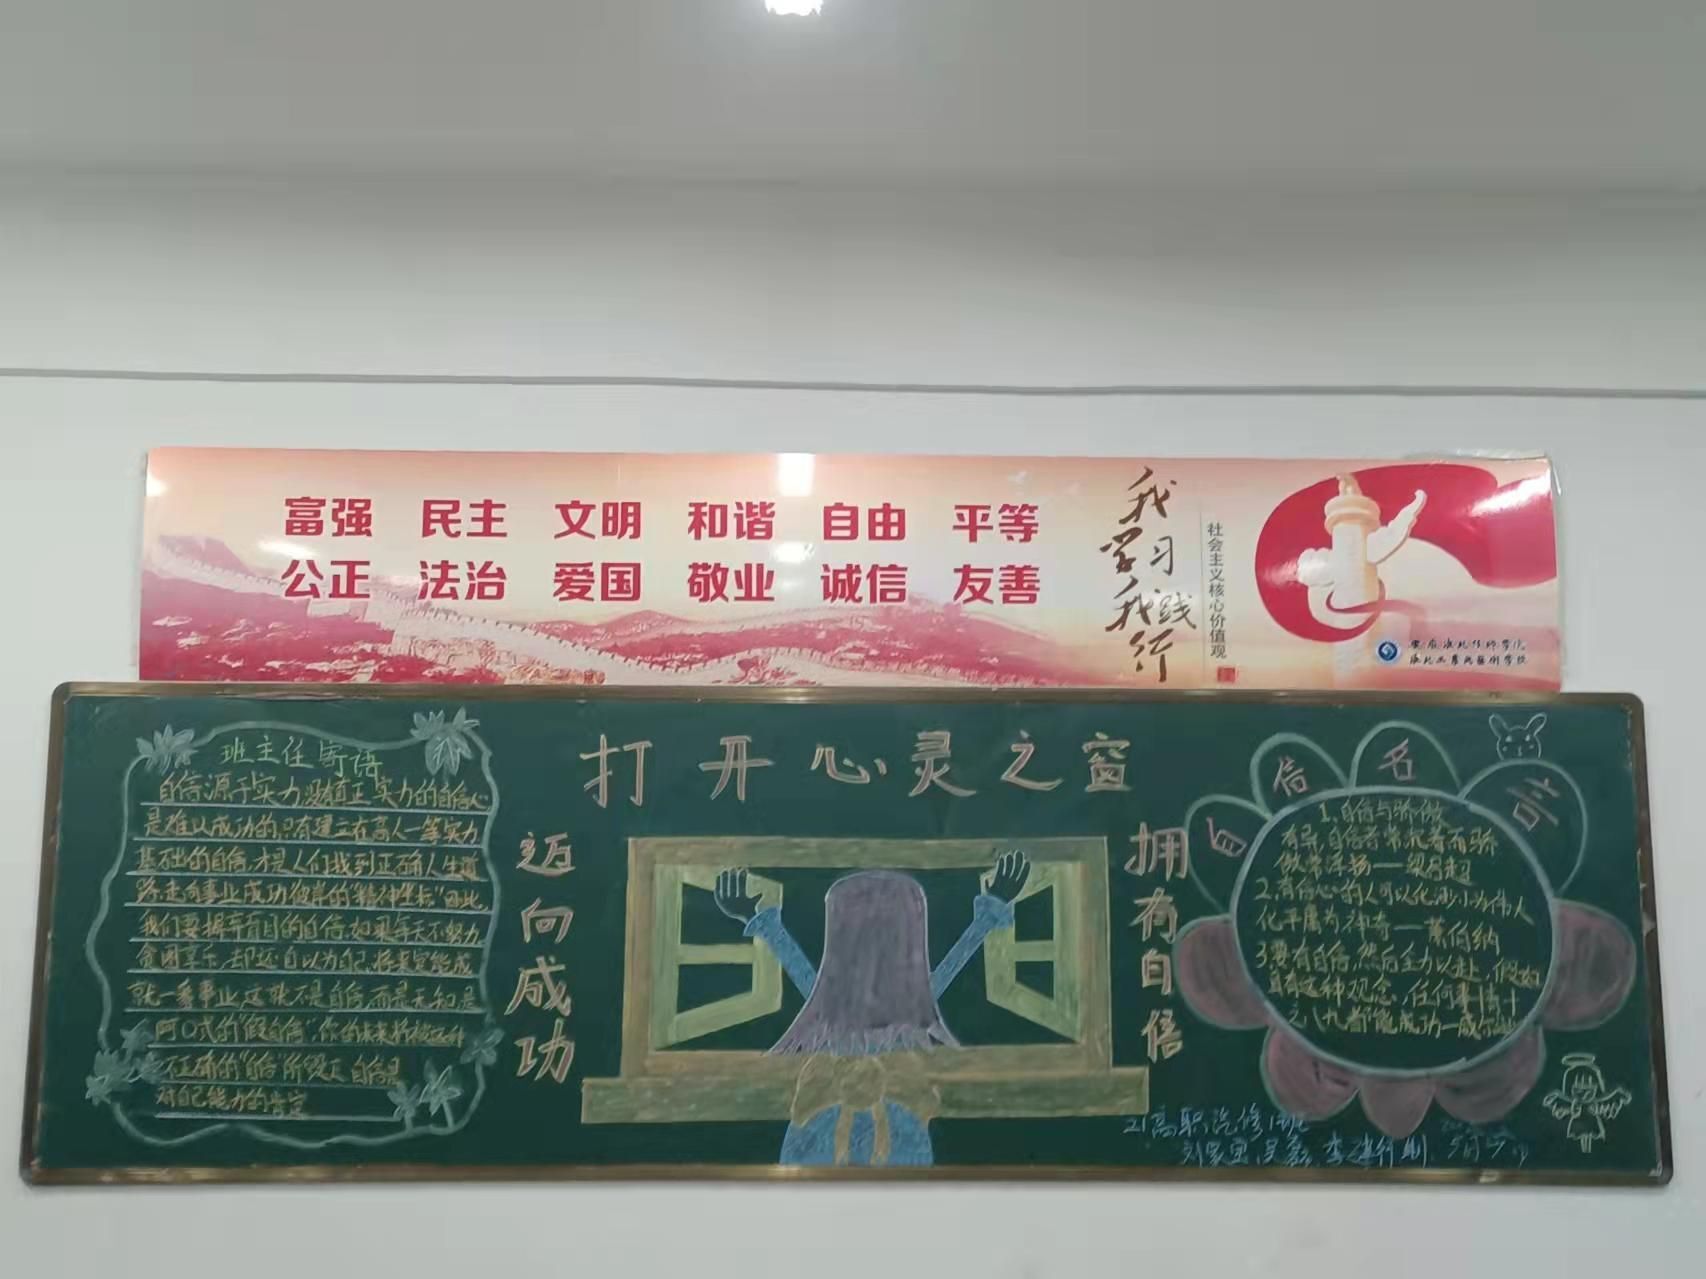 富强 民主 文明 和谐 自由 平等
公正 法治 爱国 敬业 诚信 友善
我学习
我践行
社会主义核心价值观
打开心灵之窗
班主任寄语
自信源于实力,没有真正实力的自信心
是难以成功的,只有建立在高人一等实力
基础的自信,才是人们找到正确人生道
路走向事业成功彼岸的"精神坐标"因此,
我们要摒弃盲目的自信,如果每天不努力
贪图享乐,却还自以为
就一番事业,这就不是自信,而是无知,是
阿Q式的"假自信",你的未来将被这种
不正确的"自信"所毁灭 自信是
对自己能力的肯定
迈向成功
拥有自信
自信名言
1、自信与骄傲
有异,自信者常沉着而骄
傲常浮扬——梁启超
2、有信心的人可以化渺小为伟人
化平庸为神奇——萧伯纳
3要有自信,然后全力以赴,假如
具有这种观念,任何事情十
之八九都能成功—威尔逊
21高职汽修1班